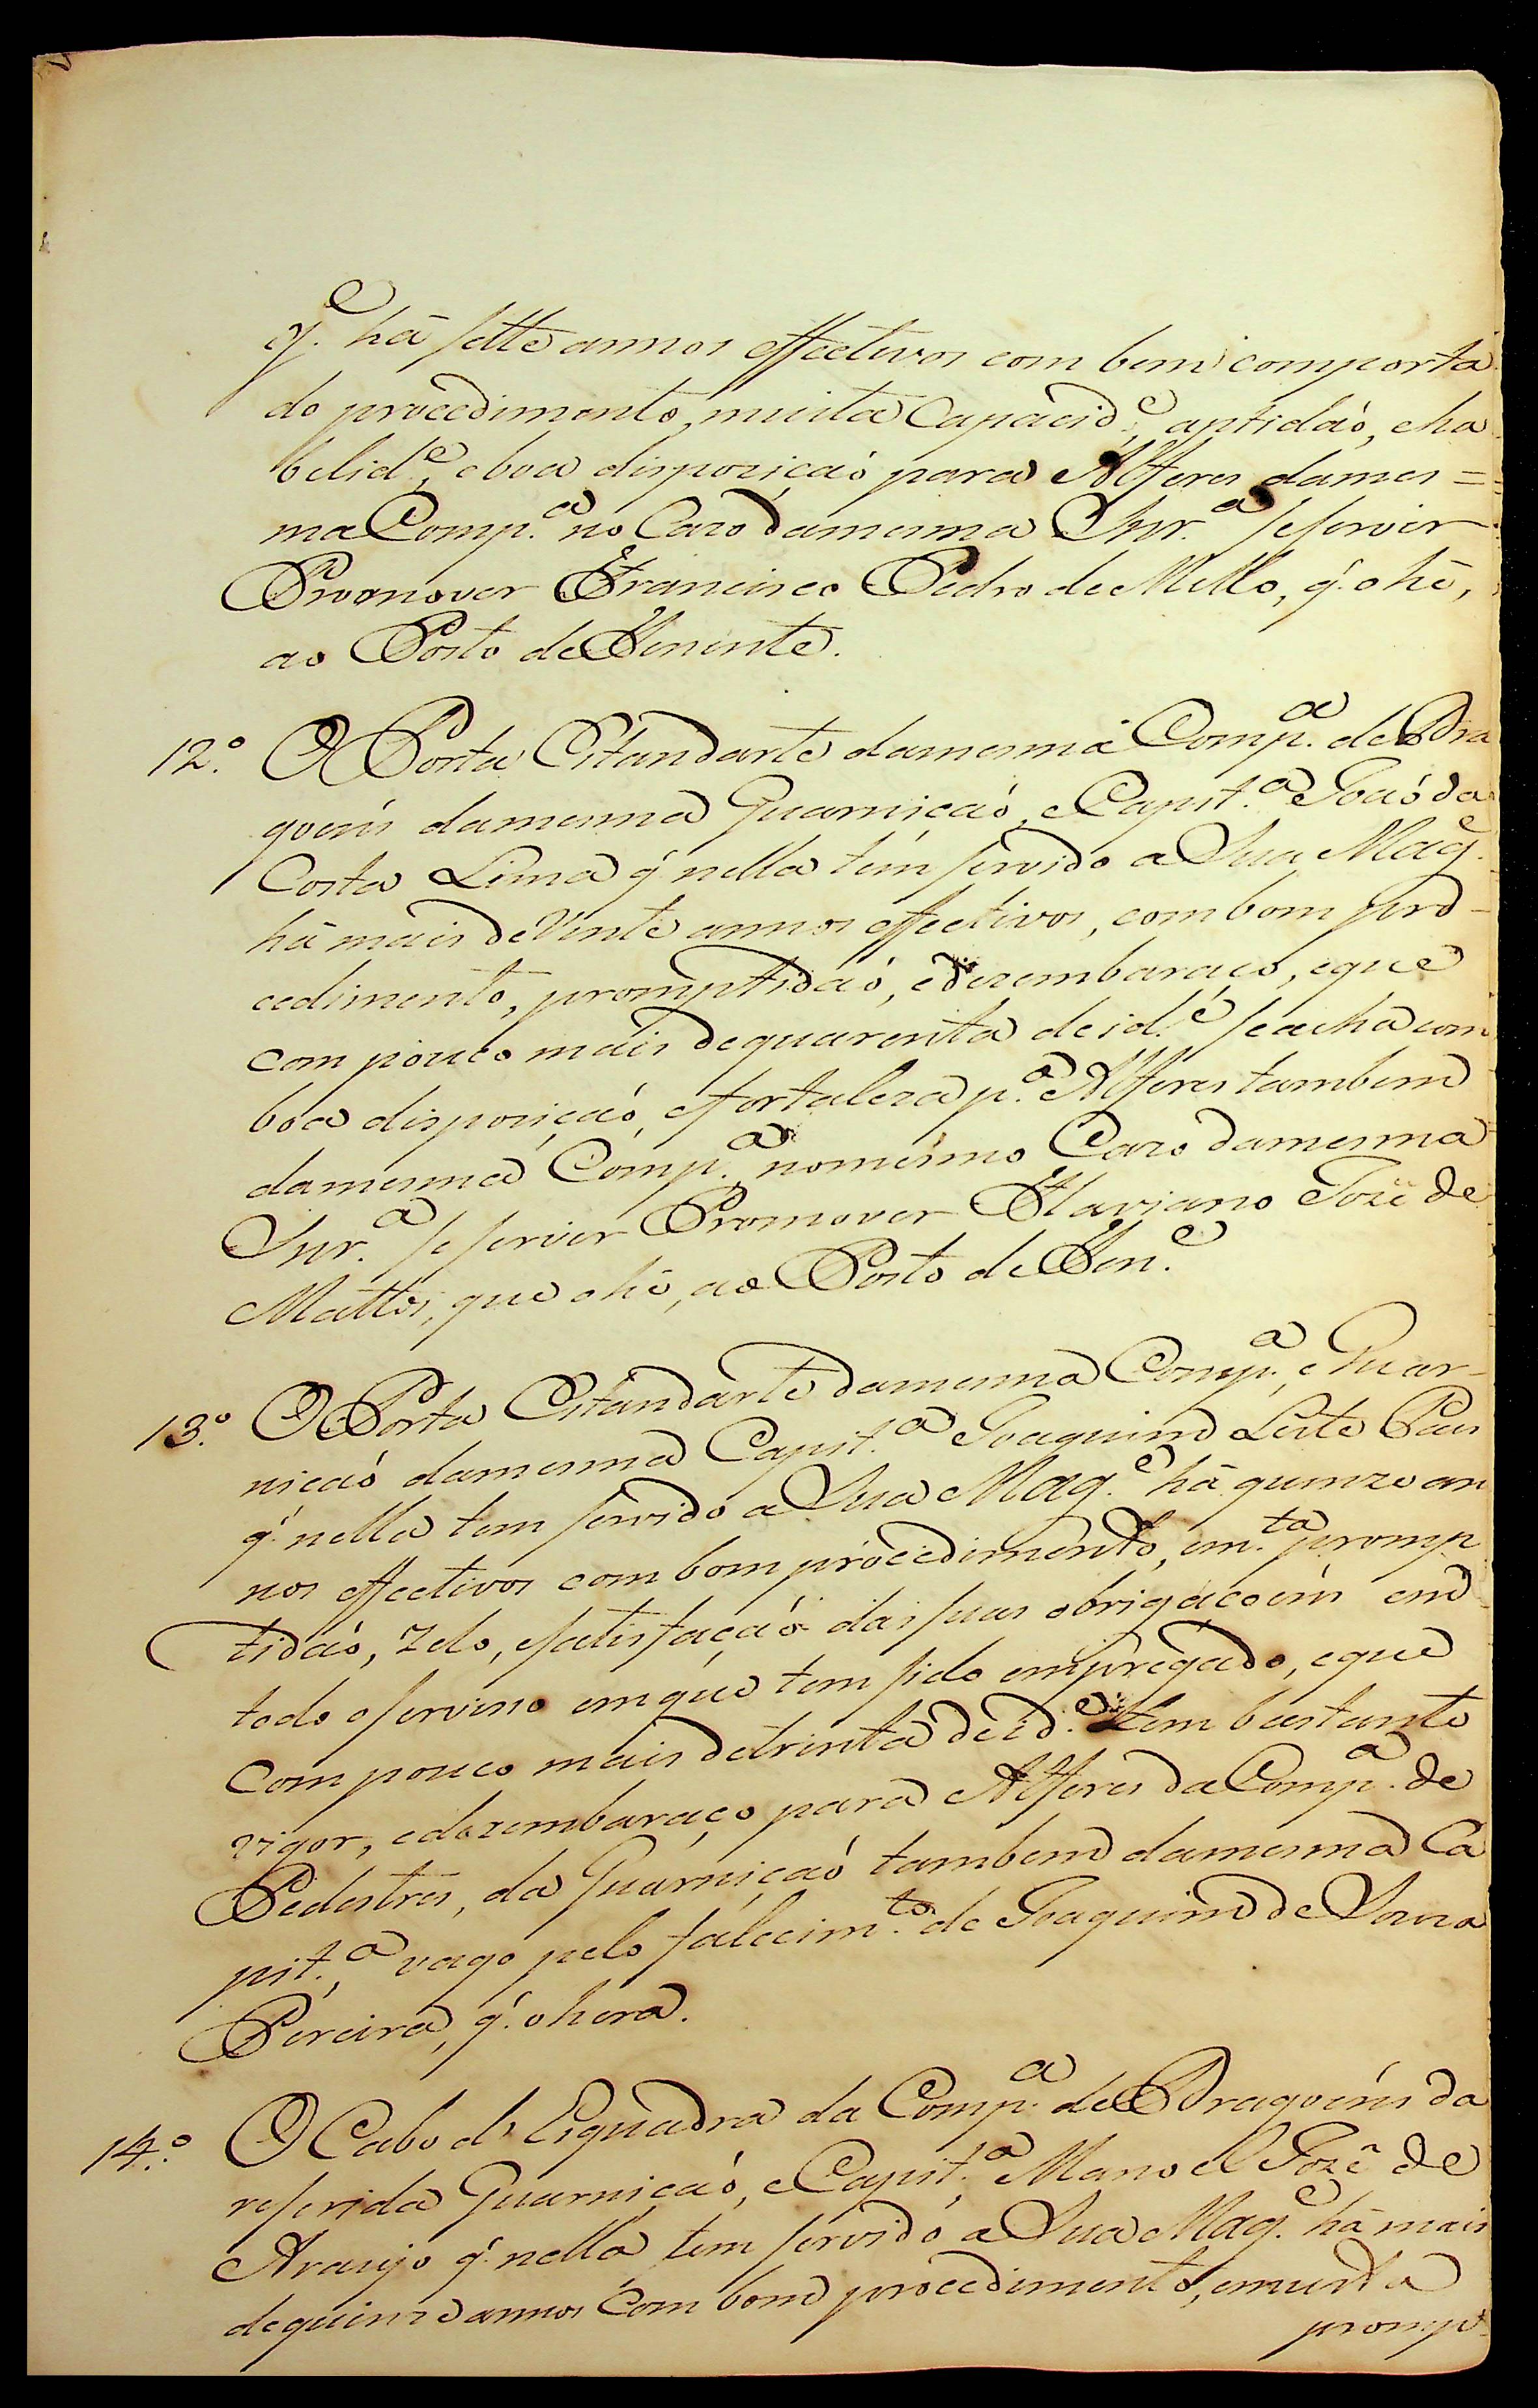 q.e há sette annos effectivos com bem comporta
do procedimento, muita Capacid.e, aptidaõ, e ha
belid.e, e boa dispoziçaõ para Alferes da mes=
ma Comp.a no Cazo da mesma Snr.a se servir
Promover Francisco Pedro de Mello, q. o hé,
ao Posto de Tenente.
12.º O Porta Estandarte da mesma Comp.a de Dra
goens da mesma Guarniçaõ, e Capit.a Joaõ da
Costa Lima q. nella tem servido a Sua Mag.e
há mais de Vinte annos effectivos, com bom pro-
cedimento, promptidaõ, e dezembaraço, e que
com pouco mais de quarenta de id.e se acha com
boa dispoziçaõ, e fortaleza p.a Alferes tambem
da mesma Comp.a, no mesmo Cazo da mesma
Snr.a se servir Promover Flaviano Jozé de
Mattos, que o hé, ao Posto de Ten.e
13.º O Porta Estandarte da mesma Comp.a, e Guar-
niçaõ da mesma Capit.a Joaquim Leite Paes
q. nella tem servido a Sua Mag.e há quinze an
nos effectivos com bom procedimento, e m.ta promp
tidaõ, Zelo, e satisfaçaõ das suas obrigaçoens em
todo o serviso em que tem sido empregado, e que
com pouco mais de trinta de id.e tem bastante
vigor, e dezembaraço para Alferes da Comp.a de
Pedestres, da Guarniçaõ tambem da mesma Ca
pit.a, vago pelo falecim.to de Joaquim de Souza
Pereira, q. o hera.
14.º O Cabo d'Esquadra da Comp.a de Dragoens da
referida Guarniçaõ, e Capit.a Manoel Jozé de
Araujo q. nella tem servido a Sua Mag.e há mais
de quinze annos Com bom procedimento, e muita
promp